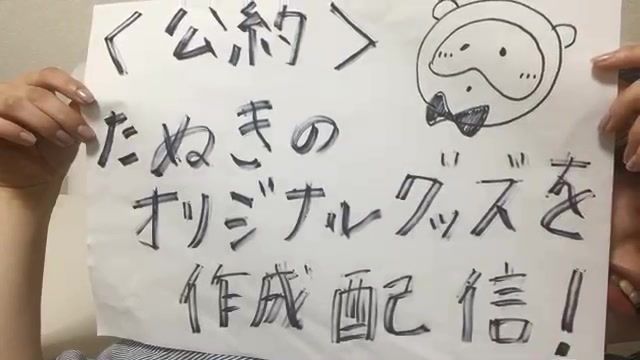 ＜公約＞
たぬきの
オリジナルグッズを
作成配信！